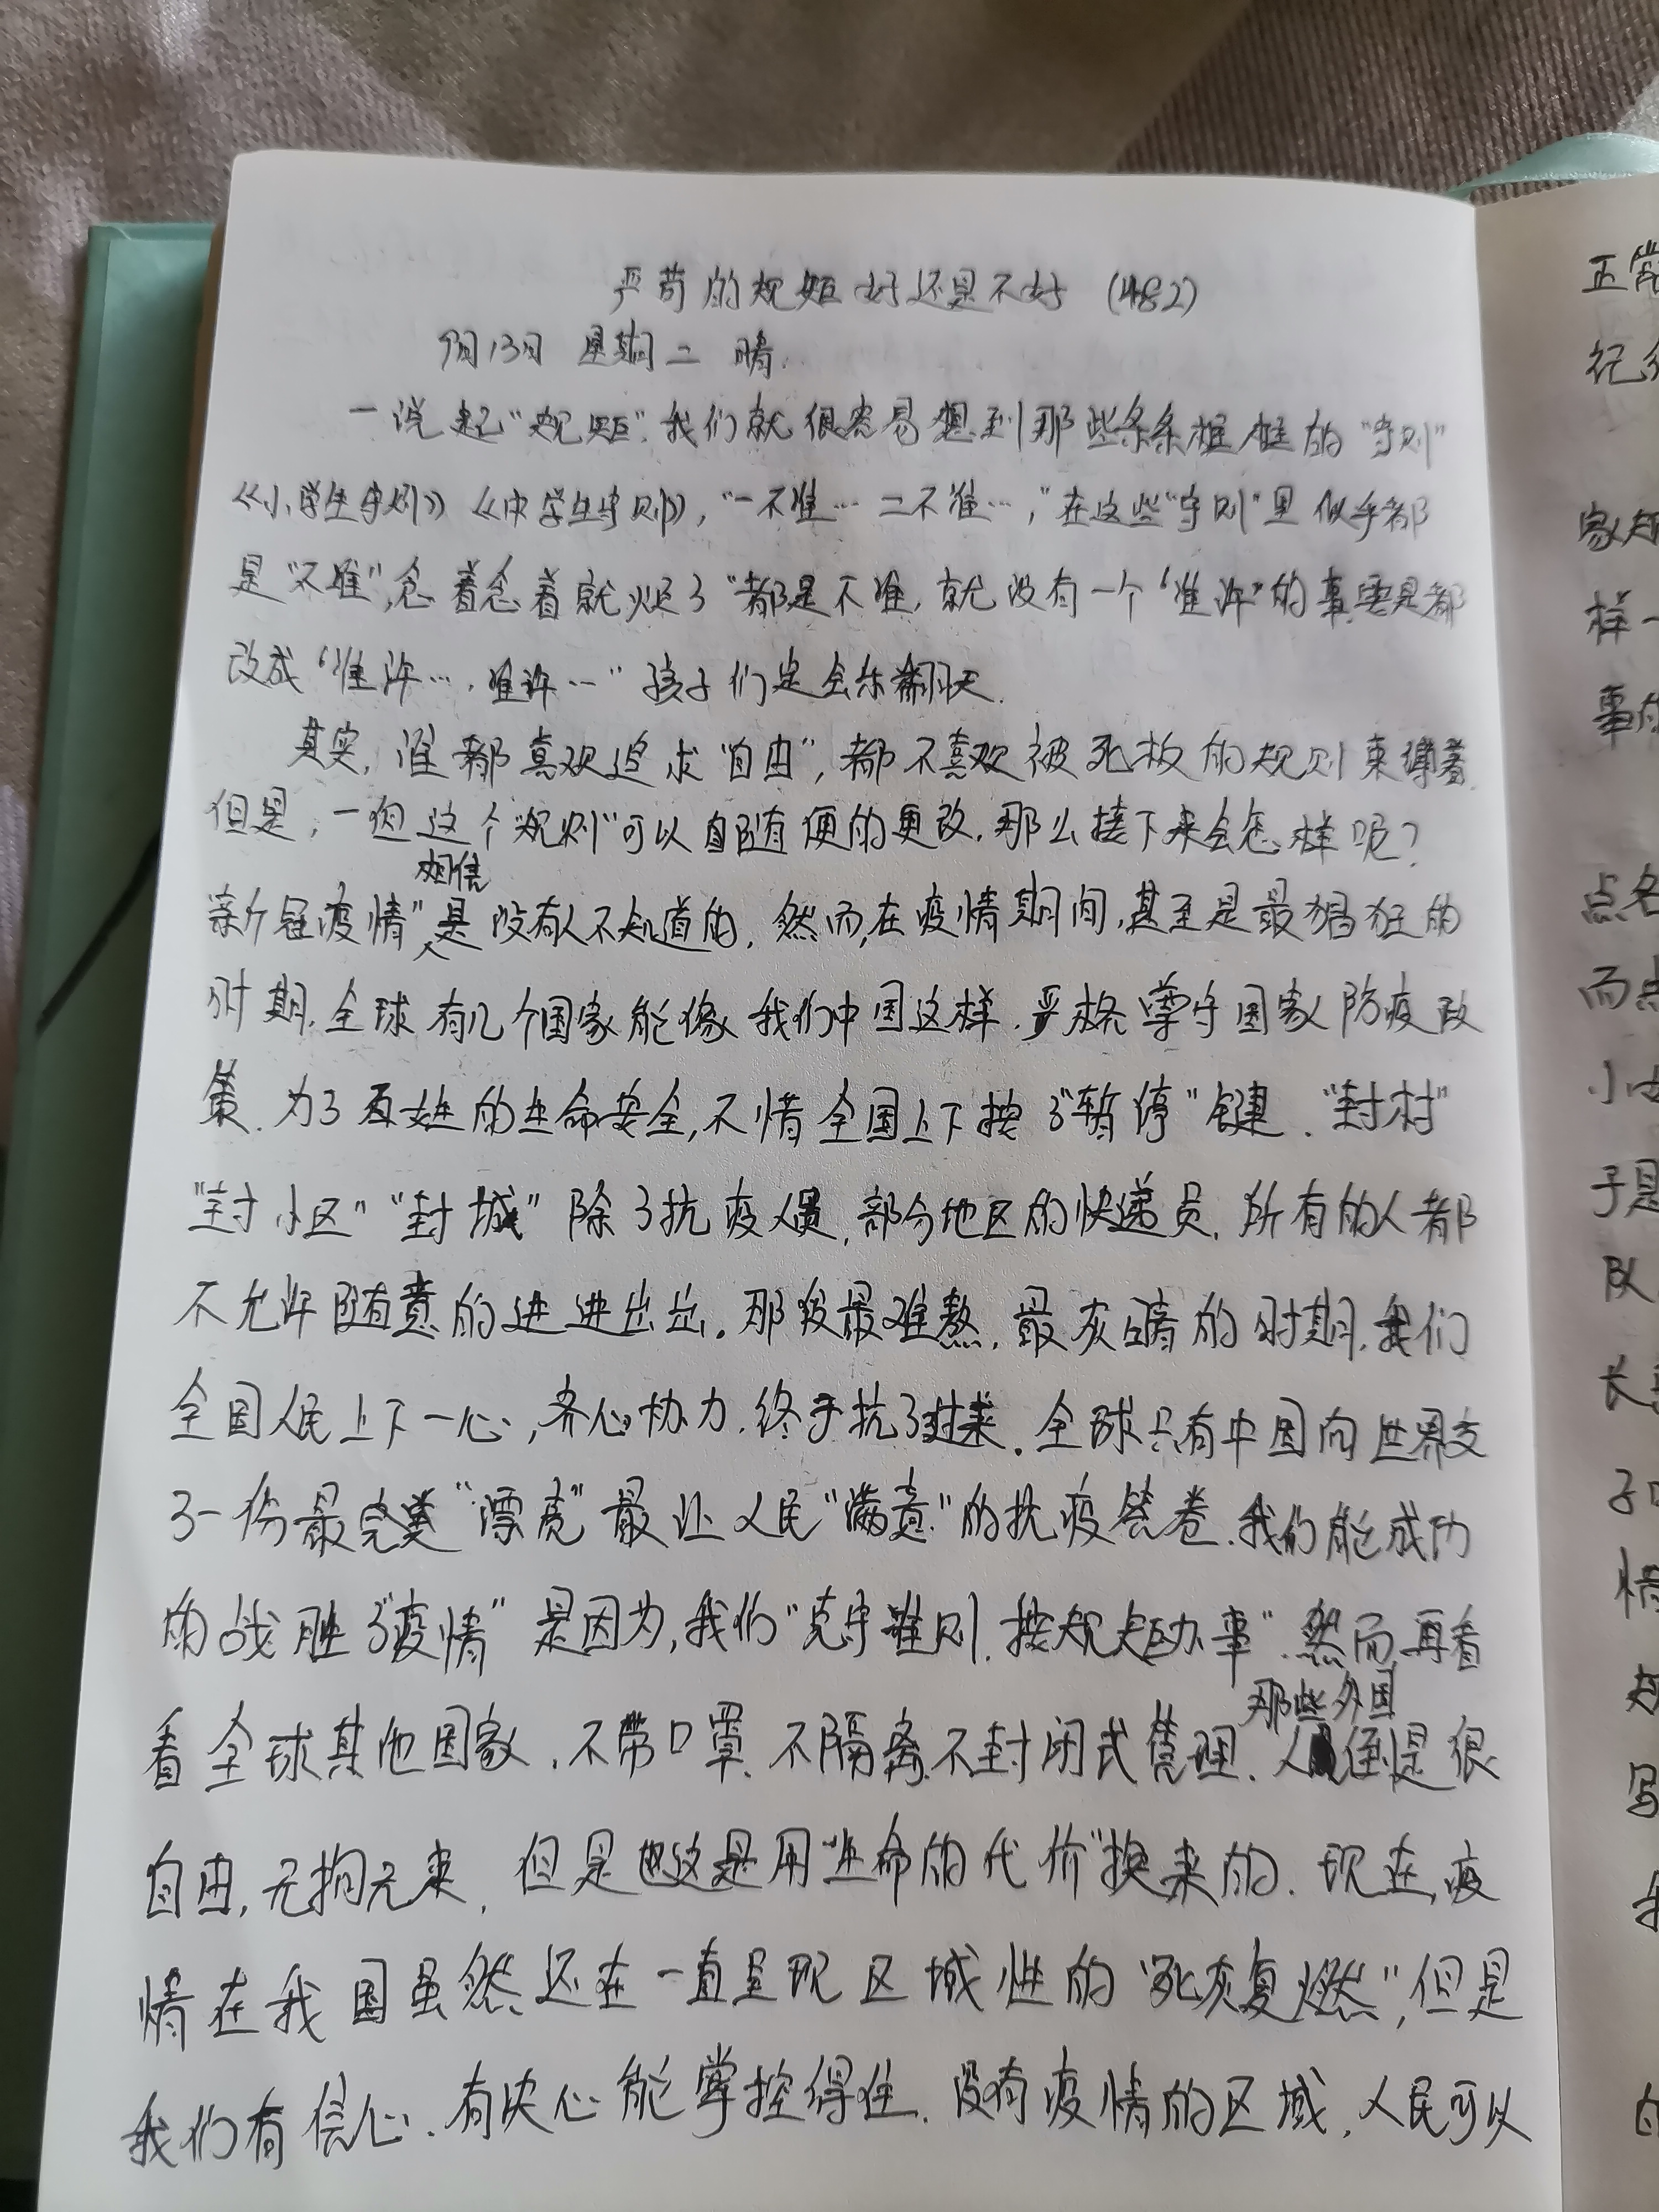 严苛的规矩好还是不好 (482)
9月13日 星期二 晴.
一说起“规矩”.我们就很容易想到那些条条框框的“守则”
《小学生守则》《中学生守则》,“一不准… 二不准…,”在这些“守则”里似乎都
是“不准”,念着念着就烦了“都是不准,就没有一个“准许”的事.要是都
改成“准许…,准许…”孩子们定会乐翻天.
其实,谁都喜欢追求“自由”,都不喜欢被死板的规则束缚着.
但是,一但这个“规则”可以自随便的更改.那么接下来会怎样呢?
相信
新冠疫情”是没有人不知道的.然而,在疫情期间,甚至是最猖狂的
时期.全球有几个国家能像我们中国这样.严格遵守国家防疫政
策.为了百姓的生命安全,不惜全国上下按了“暂停”键.“封村”
“封小区”“封城”除了抗疫人员,部分地区的快递员.所有的人都
不允许随意的进进出出.那段最难熬.最灰暗的时期.我们
全国人民上下一心,齐心协力.终于抗了过来.全球只有中国向世界交
了一份最完美“漂亮”最让人民“满意”的抗疫答卷.我们能成功
的战胜了“疫情”是因为,我们“克守准则.按规矩办事”.然而,再看
那些外国
看全球其他国家.不带口罩.不隔离.不封闭式管理.人倒是很
自由,无拘无束.但是这是用“生命的代价”换来的.现在,疫
情在我国虽然还在一直呈现区域性的“死灰复燃”,但是
我们有信心.有决心能掌控得住.没有疫情的区域,人民可以
正常
家规
样一
事的
点名
而点
于是
队
长